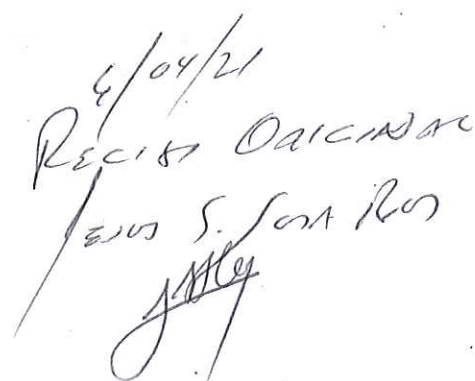 6/04/21
Recibi Original
Jesus S. Sosa Rios